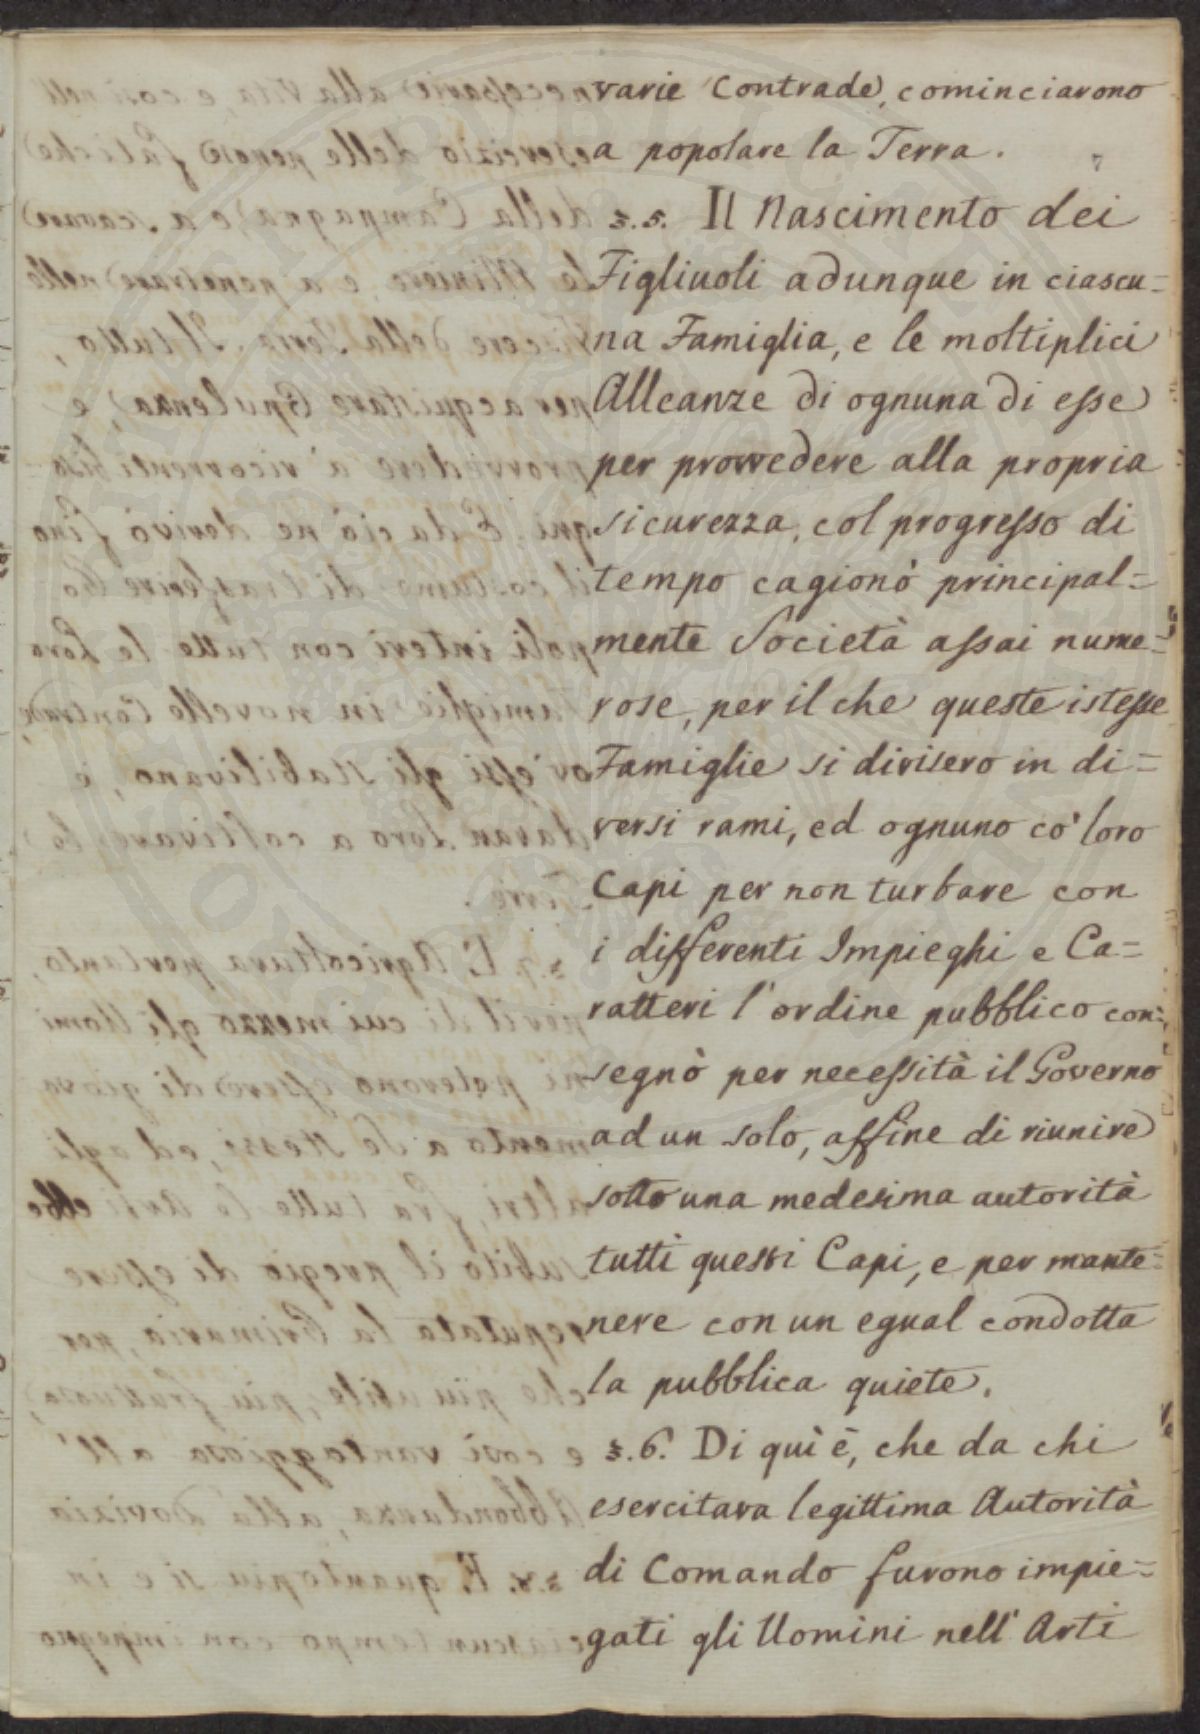 varie Contrade, cominciarono
a popolare la Terra.
7
§. 5. Il Nascimento dei
Figliuoli adunque in ciascu=
na Famiglia, e le moltiplici
Alleanze di ognuna di esse
per provvedere alla propria
sicurezza, col progresso di
tempo cagionò principal=
mente Società assai nume=
rose, per il che queste istesse
Famiglie si divisero in di=
versi rami, ed ognuno co' loro
Capi per non turbare con
i differenti Impieghi e Ca=
ratteri l'ordine pubblico con=
segnò per necessità il Governo
ad un solo, affine di riunire
sotto una medesima autorità
tutti questi Capi, e per mante=
nere con un egual condotta
la pubblica quiete.
§. 6. Di quì è, che da chi
esercitava legittima Autorità
di Comando furono impie=
gati gli Uomini nell' Arti